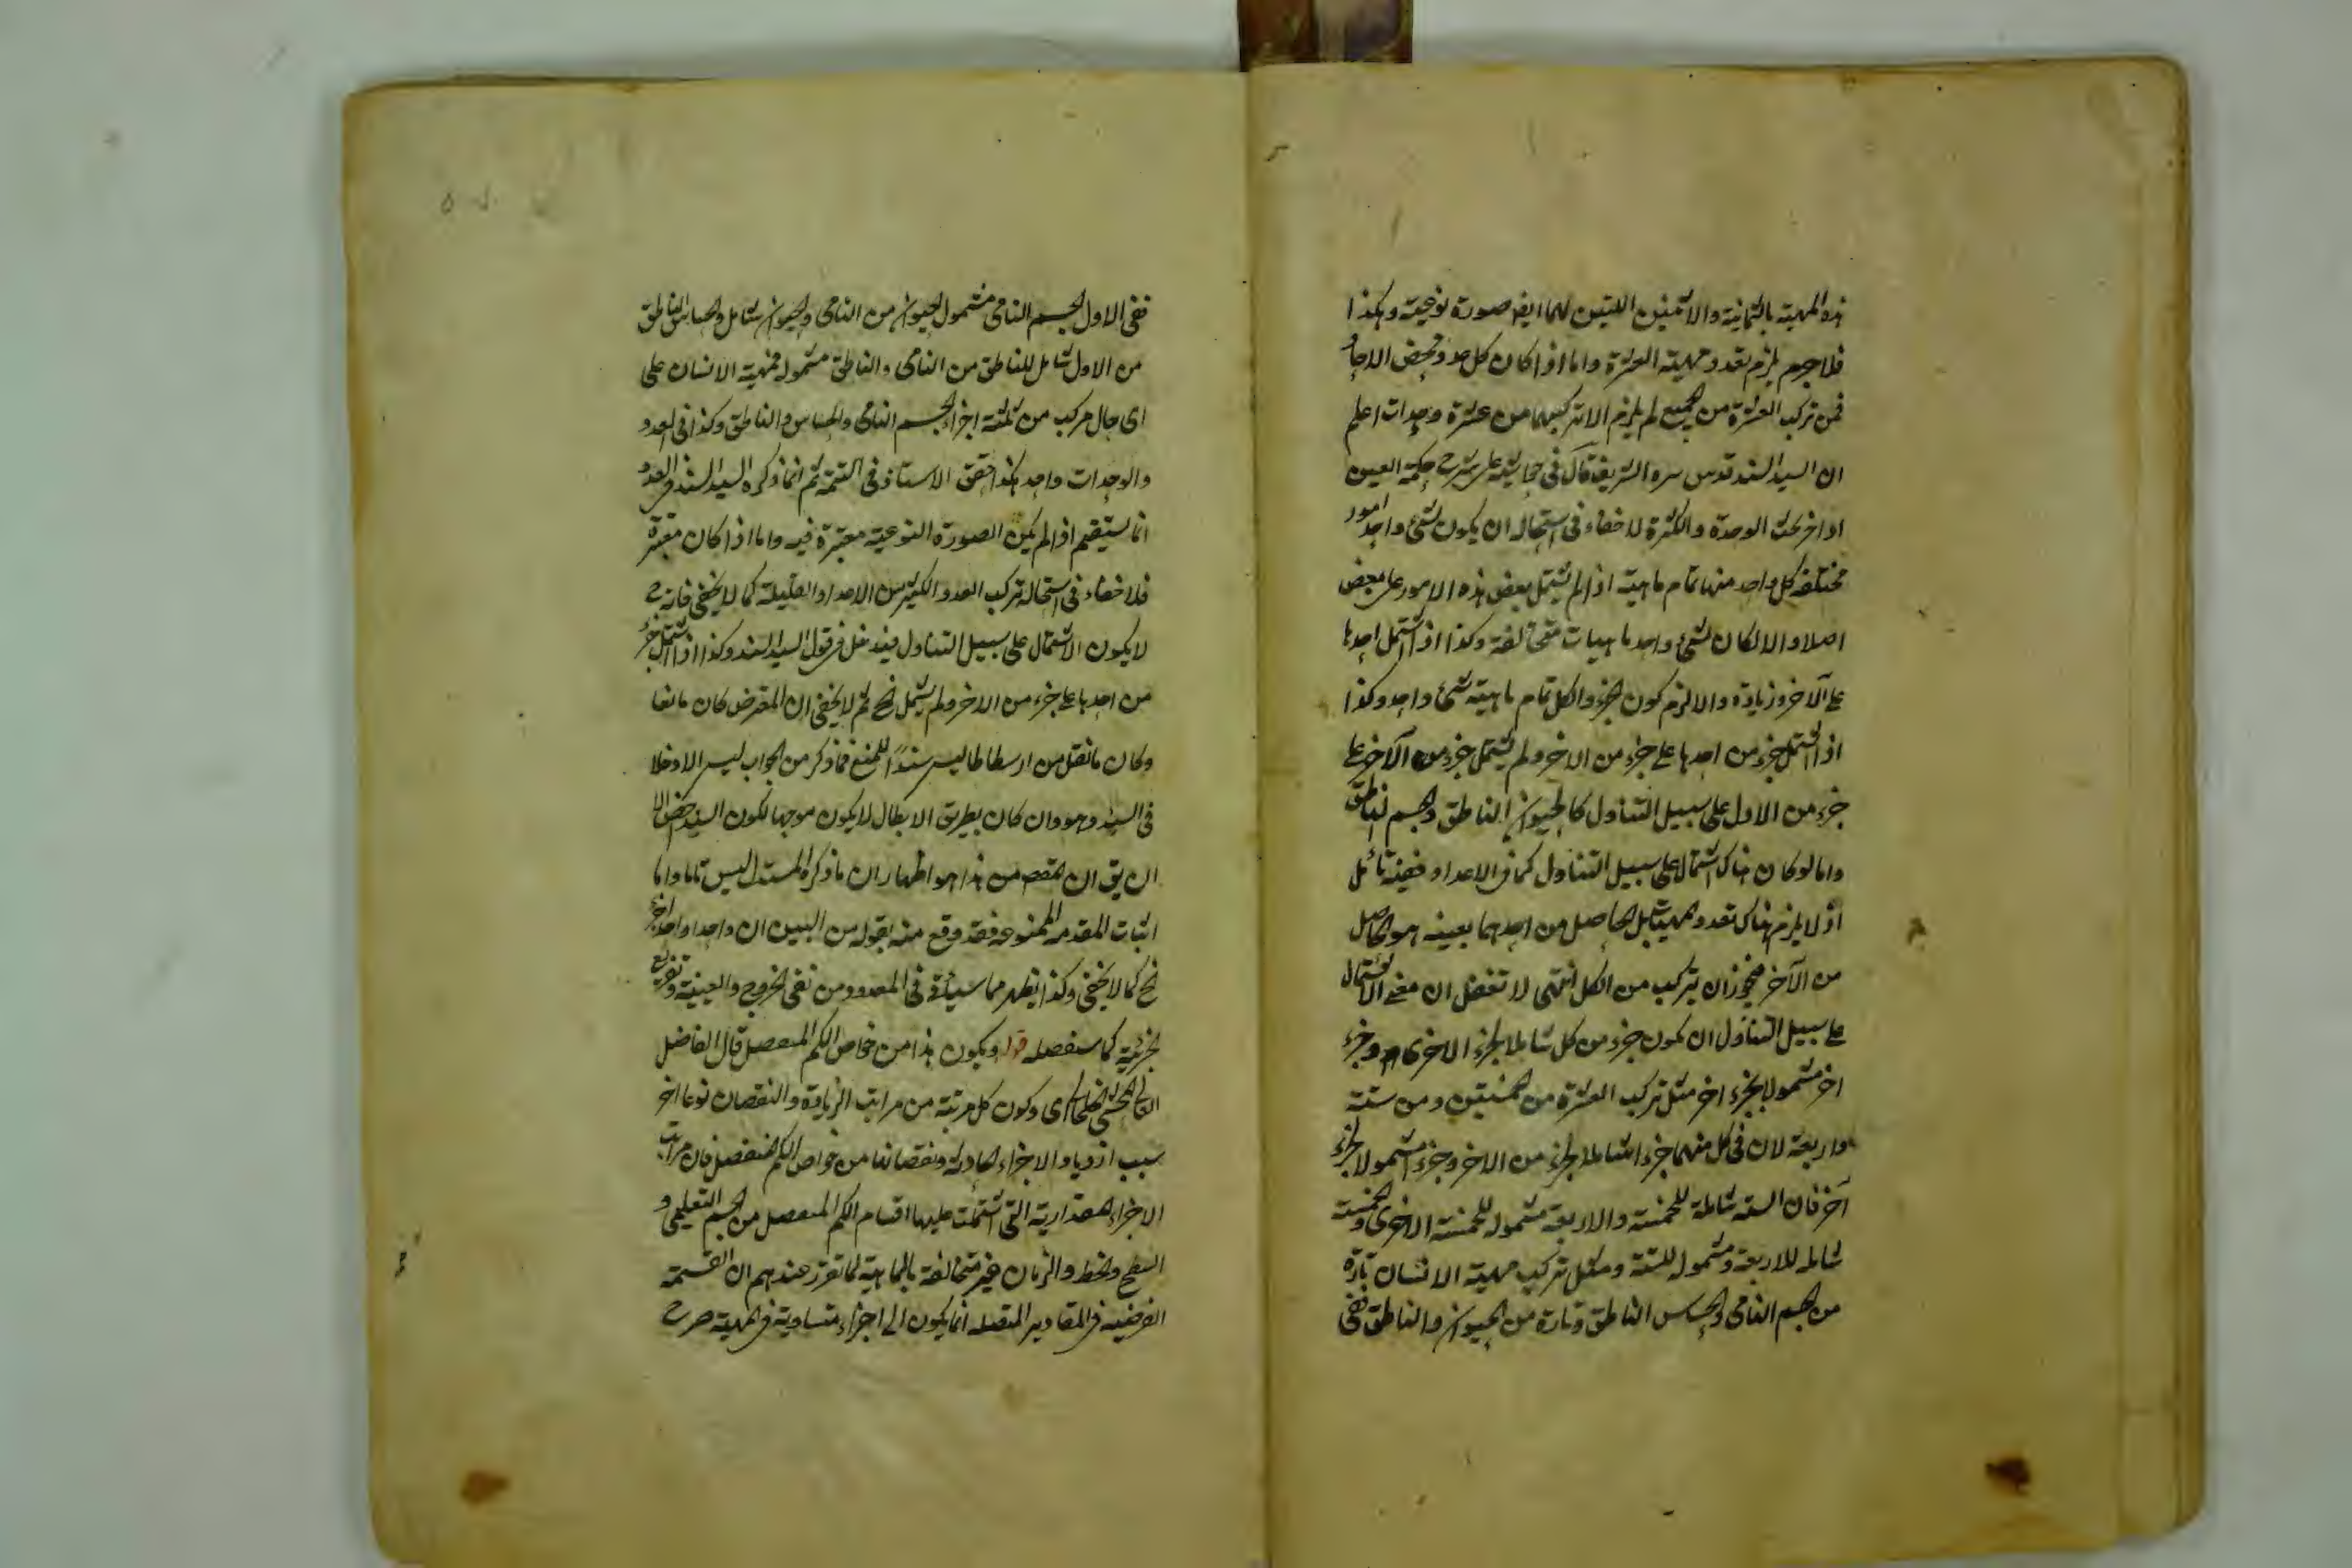 هذه المهية بالثمانية والاثنين اللتين لهما ايض صورة نوعية وهكذا
فلا جرم يلزم تعدد مهية العشرة واما اذا كان كل عدد محض الاحاد
فمن تركب العشرة من الجميع لم يلزم الا تركبها من عشرة وحدات اعلم
ان السيد السند قدس سره الشريف قال في حاشيته على شرح حكمة العين
اواخر بحث الوحدة والكثرة لا خفاء في استحالة ان يكون لشئ واحد امور
مختلفة كل واحد منها تمام ماهيته اذا لم يشتمل بعض هذه الامور على بعض
اصلا والا لكان لشئ واحد ماهيات متخالفة وكذا اذا اشتمل احدها
على الآخر وزيادة والا لزم كون الجزء والكل تمام ماهية شئ واحد وكذا
اذا اشتمل جزء من احدها على جزء من الاخر ولم يشتمل جزء من الآخر على
جزء من الاول على سبيل التناول كالحيوان الناطق والجسم الناطق
واما لو كان هناك اشتمال على سبيل التناول كما في الاعداد ففيه تأمل
اذ لا يلزم هناك تعدد المهيات بل الحاصل من احدهما بعينه هو الحاصل
من الآخر فيجوز ان يتركب من الكل انتهى لا تغفل ان معنى الاشتمال
على سبيل التناول ان يكون جزء من كل شاملا لجزء الاخرى وجزء
اخر مشمولا لجزء اخر مثل تركب العشرة من خمستين ومن ستة
واربعة لان في كل منهما جزء شاملا لجزء من الاخر وجزء مشمولا لجزء
آخر فان الستة شاملة للخمسة والاربعة مشمولة للخمسة الاخرى والخمسة
شاملة للاربعة ومشمولة للستة ومثل تركيب مهية الانسان تارة
من الجسم النامي والحساس الناطق وتارة من الحيوان والناطق ففي
ففي الاول الجسم النامي مشمول الحيوان من النامي والحيوان شامل والحساس الناطق
من الاول شامل للناطق من النامي والناطق مشموله فمهية الانسان على
اي حال مركب من ثلثة اجزاء الجسم النامي والحساس والناطق وكذا في العدد
والوحدات واحد هكذا حقق الاستاذ في التتمة ثم انما ذكره السيد السند في العدد
انما يستقيم اذا لم يكن الصورة النوعية معتبرة فيه واما اذا كان معتبرة
فلا خفاء في استحالة تركب العدد الكثير من الاعداد القليلة كما لا يخفى فانه ح
لا يكون الاشتمال على سبيل التناول فيدخل في قول السيد السند وكذا اذا اشتمل جزء
من احدها على جزء من الاخر ولم يشتمل الخ ثم لا يخفى ان المعترض كان مانعا
وكان ما نقل من ارسطاطاليس سندا للمنع فما ذكر من الجواب ليس الا دخلا
في السند وهو وان كان بطريق الابطال لا يكون موجها لكون السند اخص الا
ان يق ان المقصـ من هذا هو اظهار ان ما ذكره المستدل ليس تاما واما
اثبات المقدمة الممنوعة فقد وقع منه بقوله من البين ان واحدا واحدا
الخ كما لا يخفى وكذا يظهر مما سيأتي في المعدود من نفي الخروج والعينية وتفريع
الجزئية كما سنفصله قوله ويكون هذا من خواص الكم المنفصل قال الفاضل
المحشي الخلخالي اي وكون كل مرتبة من مراتب الزيادة والنقصان نوعا اخر
سبب ازدياد الاجزاء ونقصانها من خواص الكم المنفصل فان مراتب
الاجزاء المقدارية التي اشتملت عليها اقسام الكم المتصل من الجسم التعليمي و
السطح والخط والزمان غير متخالفة بالماهية لما تقرر عندهم ان القسمة
الفرضية في المقادير المتصلة انما يكون الى اجزاء متساوية في المهية صرح